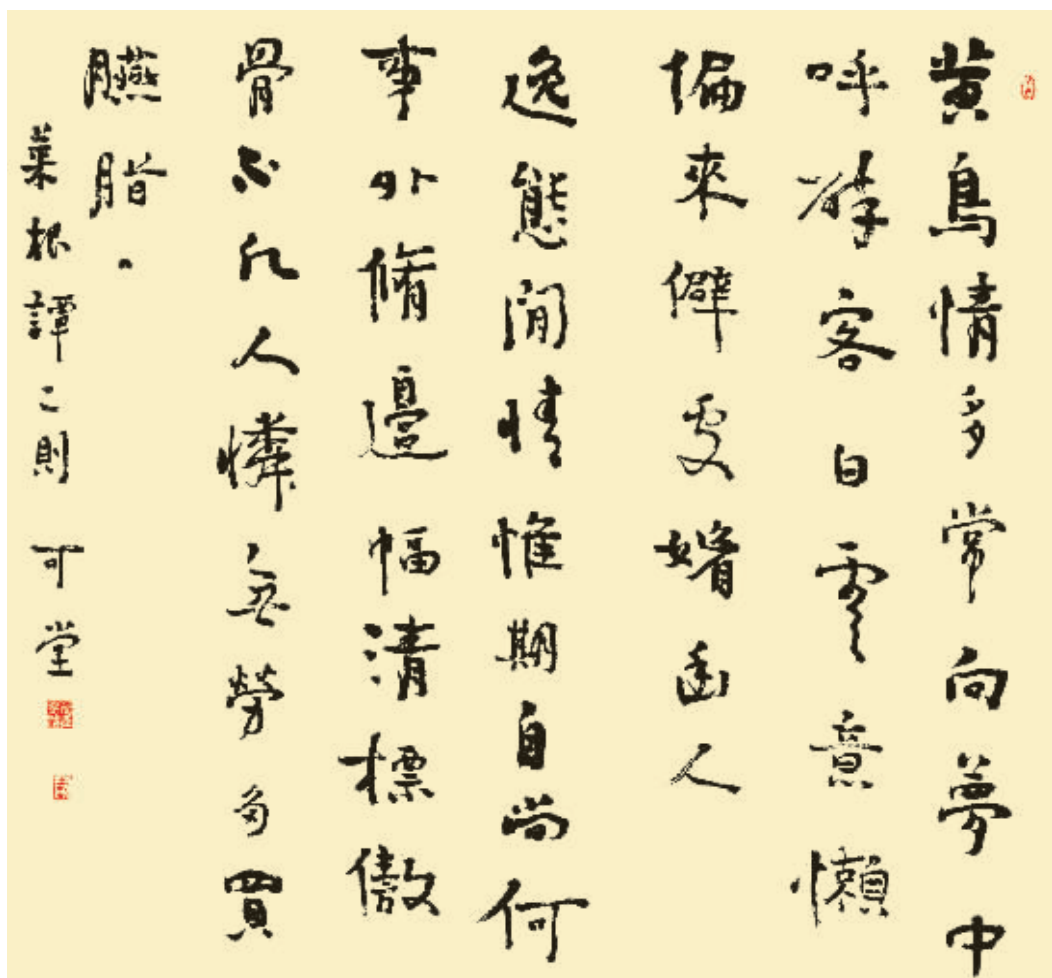 黄鳥情多常向夢中
呼醉客白雲意懶
偏來僻處媚幽人
逸態閒情惟期自尚何
事外脩邊幅清標傲
骨不願人憐無勞多買
臙脂。
菜根譚二則 可堂